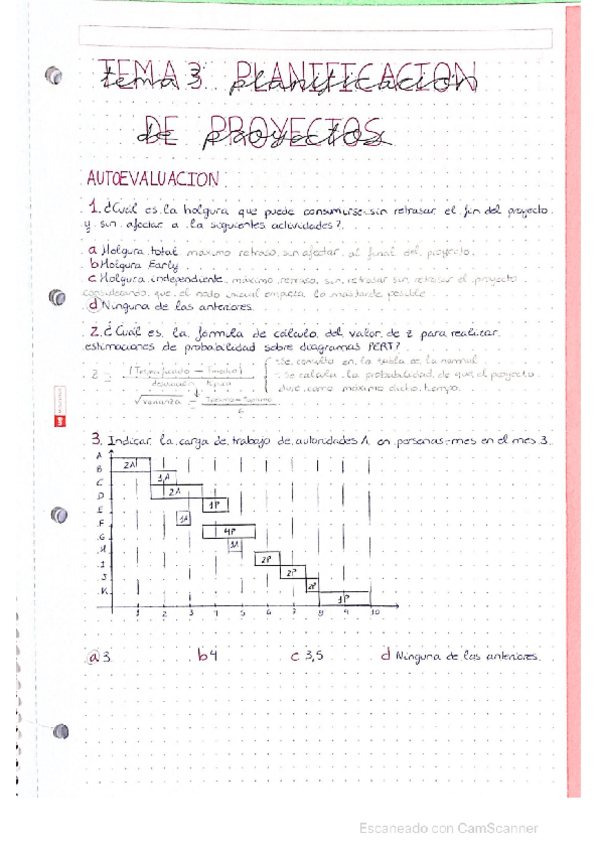 TEMA 3 PLANIFICACION
DE PROYECTOS
AUTOEVALUACION
1. ¿Cuál es la holgura que puede consumirse sin retrasar el fin del proyecto
y sin afectar a la siguientes actividades?
a Holgura total máximo retraso sin afectar al final del proyecto.
b Holgura Early
c Holgura independiente máximo retraso sin retrasar sin retrasar el proyecto
considerando que el nodo inicial empieza lo mas tarde posible
d Ninguna de las anteriores.
2. ¿Cuál es la fórmula de cálculo del valor de z para realizar
estimaciones de probabilidad sobre diagramas PERT?
Se consulta en la tabla de la normal
Se calcula la probabilidad de que el proyecto
dure como máximo dicho tiempo.
desviación típica
√varianza
6
3. Indicar la carga de trabajo de autoridades A en personas-mes en el mes 3.
A
B 2A
C 1A
D 2A
E 1P
F 1A
G 4P
1A
I 2P
J 2P
K 2P
1P
1 2 3 4 5 6 7 8 9 10
a 3 b 4 c 3,5 d Ninguna de las anteriores.
Escaneado con CamScanner